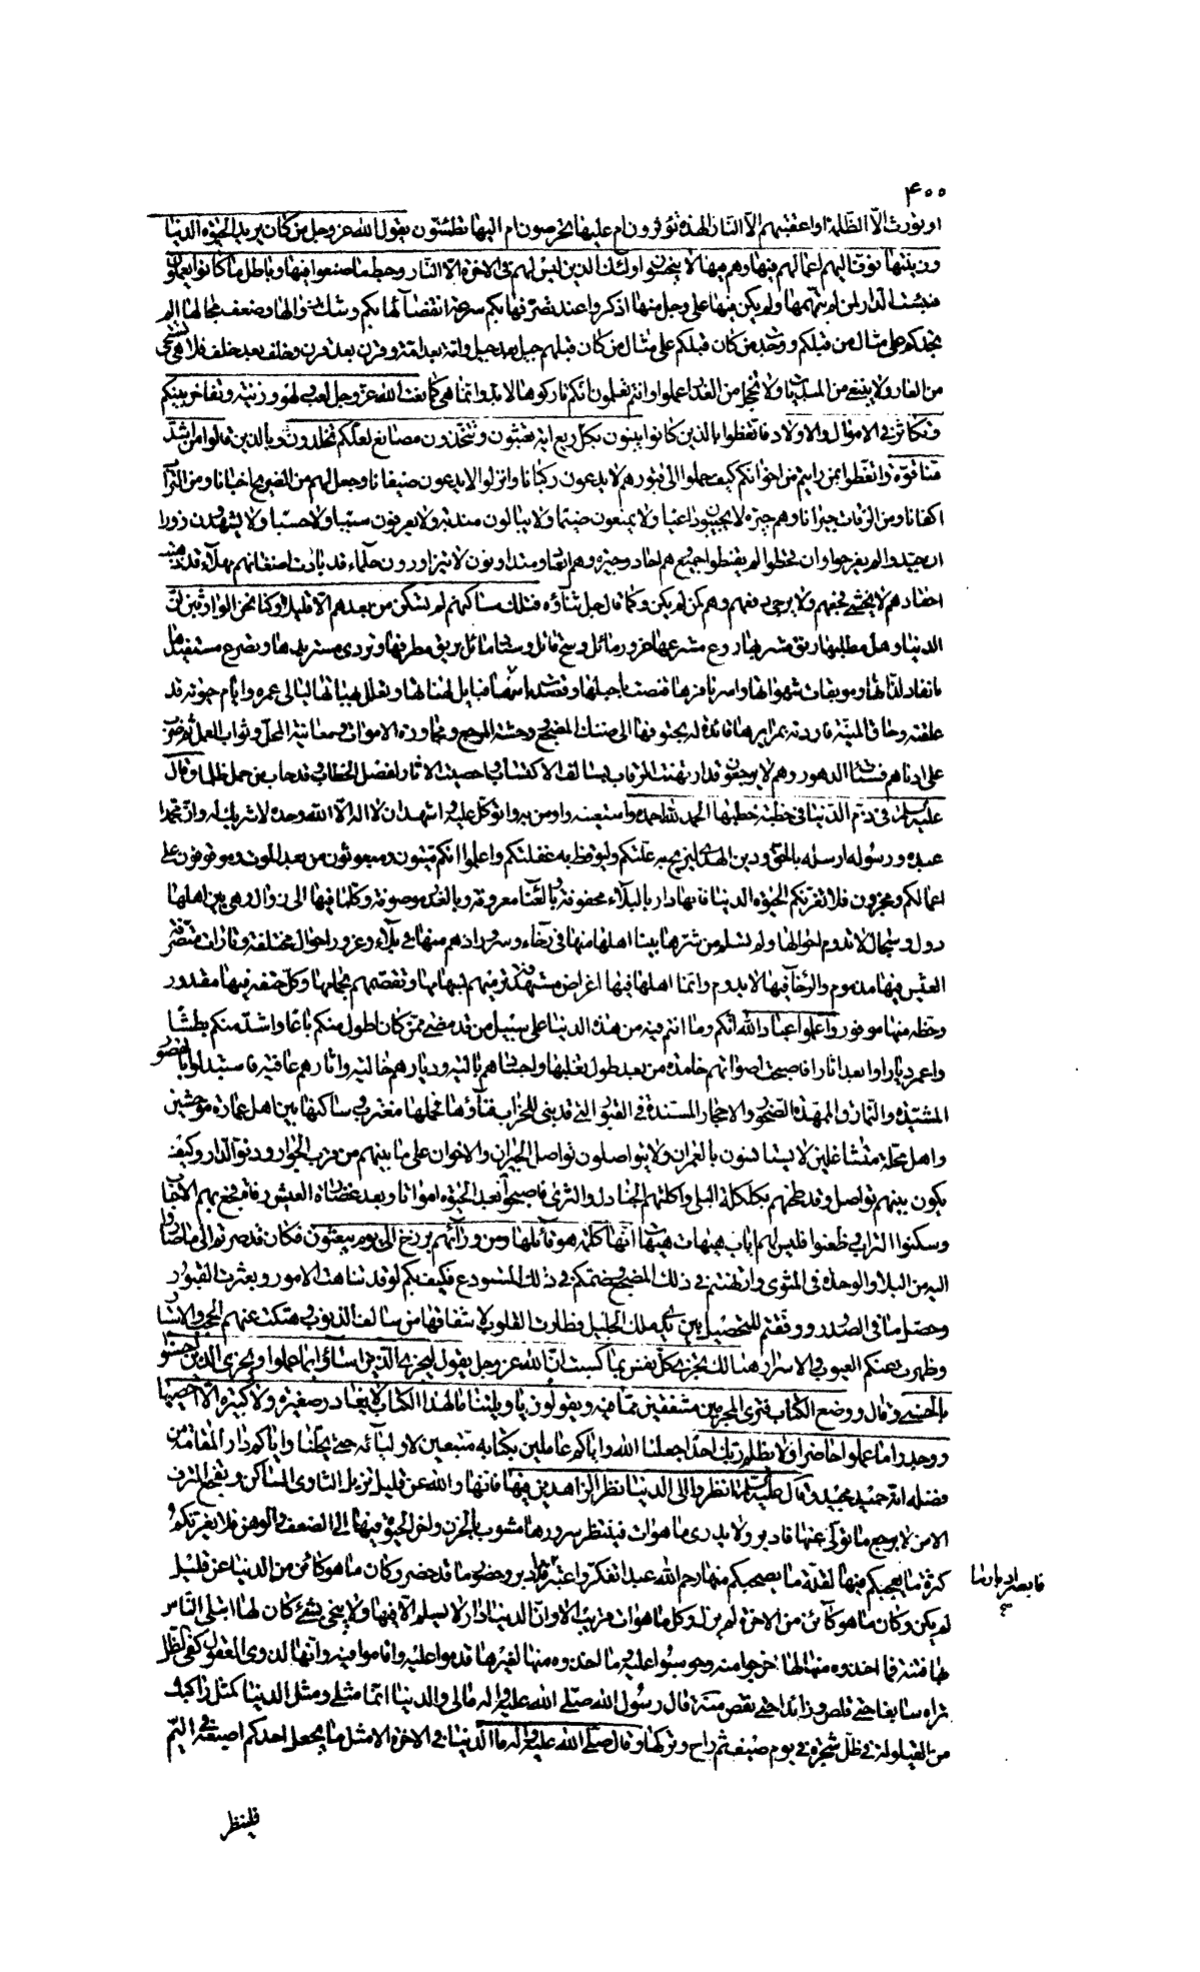 ۴۰۰
او نورت الا الظلمة او اعقبتهم الا النار الهذه تؤثرون ام عليها تحرصون ام اليها تطمئنون يقول الله عز وجل من كان يريد الحيوة الدنيا
وزينتها نوف اليهم اعمالهم فيها وهم فيها لا يبخسون اولئك الذين ليس لهم فى الاخرة الا النار وحبط ما صنعوا فيها وباطل ما كانوا يعملون
فبئست الدار لمن لم يتهمها ولم يكن فيها على وجل منها اذكروا عند تصرفها بكم سرعة انقضائها عنكم ووشك زوالها وضعف مجالها الم
تجدكم على مثال من قبلكم ووجدت من كان قبلكم على مثال من كان قبلهم جيل بعد جيل وامة بعد امة وقرن بعد قرن وخلف بعد خلف فلا هى تستحى
من العار ولا ينفع من المسبات ولا تخجل من الغدر اعملوا وانتم تعلمون انكم تاركوها لا بد وانما هى كما نعت الله عز وجل لعب ولهو وزينة وتفاخر بينكم
وتكاثر فى الاموال والاولاد فاتعظوا بالذين كانوا يبنون بكل ريع اية تعبثون وتتخذون مصانع لعلكم تخلدون وبالذين قالوا من اشد
منا قوة واتعظوا بمن رايتم من اخوانكم كيف حملوا الى قبورهم لا يدعون ركبانا وانزلوا لا يدعون ضيفانا وجعل لهم من الضريح اجنانا ومن التراب
اكفانا ومن الرفات جيرانا وهم جيرة لا يجيبون داعيا ولا يمنعون ضيما ولا يبالون مندبة ولا يعرفون سيئا ولا حسنا ولا يشهدون زورا
ان جيدوا لم يفرحوا وان قحطوا لم يقنطوا جميع وهم احاد وجيرة وهم ابعاد ومتدانون لا يتزاورون حلماء قد بادت اضغانهم جهلاء قد ذهبت
احقادهم لا يخشى فجعهم ولا يرجى دفعهم وهم كمن لم يكن وكما قال جل ثناؤه فتلك مساكنهم لم تسكن من بعدهم الا قليلا وكنا نحن الوارثين ان
الدنيا وهل مطلبها رنق مشربها ردغ مشرعها غرور ماثل وسم قاتل وسناد مائل يريق مطرفها وتردى مستزيدها وتصرع مستفيدها
بانفاد لذاتها وموبقات شهواتها واسر نافرها قنصت باحبلها وقصدت باسهمها
علقته وهاق المنية فاردته بمرايرها قائدة له بحتوفها الى ضنك المضجع ووحشة المرجع ومجاورة الاموات ومعاينة المحل وثواب العمل ثم ضرب
على اذانهم سبات الدهور وهم لا يرجعون قد ارتهنت الرقاب بسالف الاكتساب واحصيت الاثار لفصل الخطاب وقد خاب من حمل ظلما وقال
عليه السلام فى ذم الدنيا فى خطبة خطبها الحمد لله احمده واستعينه واومن به واتوكل عليه واشهد ان لا اله الا الله وحده لا شريك له وان محمدا
عبده ورسوله ارسله بالحق ودين الهدى ليزيح به علتكم وليوقظ به غفلتكم واعلموا انكم ميتون ومبعوثون من بعد الموت وموقوفون على
اعمالكم ومجزون فلا تغرنكم الحيوة الدنيا فانها دار بالبلاء محفوفة وبالعناء معروفة وبالغدر موصوفة وكلما فيها الى زوال وهى بين اهلها
دول وسجال لا تدوم احوالها ولم يسلم من شرها بينا اهلها منها فى رخاء وسرور اذ هم منها فى بلاء وغرور احوال مختلفة وتارات متصرفة
العيش فيها مذموم والرخاء فيها لا يدوم وانما اهلها فيها اغراض مستهدفة ترميهم بسهامها وتقصمهم بحمامها وكل حتفه فيها مقدور
وحظه منها موفور واعلموا عباد الله انكم وما انتم فيه من هذه الدنيا على سبيل من قد مضى ممن كان اطول منكم باعا واشد منكم بطشا
واعمر ديارا وابعد اثارا فاصبحت اصواتهم خامدة من بعد طول تقلبها واجسادهم بالية وديارهم خالية واثارهم عافية فاستبدلوا بالقصور
المشيدة والنمارق الممهدة الصخور والاحجار المسندة فى القبور التى قد بنى للخراب فناؤها فمحلها مقترب وساكنها بين اهل عمارة موحشين
واهل محلة متشاغلين لا يستانسون بالعمران ولا يتواصلون تواصل الجيران والاخوان على ما بينهم من قرب الجوار ودنو الدار وكيف
يكون بينهم تواصل وقد طحنهم بكلكله البلى واكلتهم الجنادل والثرى فاصبحوا بعد الحيوة امواتا وبعد غضارة العيش رفاتا فجع بهم الاحباب
وسكنوا التراب وظعنوا فليس لهم اياب هيهات هيهات انها كلمة هو قائلها ومن ورائهم برزخ الى يوم يبعثون فكان قد صرتم الى ما صاروا
اليه من البلاء والوحدة فى المثوى وارتهنتم فى ذلك المضجع وضمكم فى ذلك المستودع فكيف بكم لو قد تناهت الامور وبعثرت القبور
وحصل ما فى الصدور ووقفتم للتحصيل بين يدى ملك الجليل فطارت القلوب لاشفاقها من سالف الذنوب وهتكت عنهم الحجب والاستار
وظهرت بعنكم العيوب والاسرار هنالك تجزى كل نفس بما كسبت ان الله عز وجل يقول ليجزى الذين اساؤا بما عملوا ويجزى الذين احسنوا
بالحسنى وقال ووضع الكتاب فترى المجرمين مشفقين مما فيه ويقولون يا ويلتنا ما لهذا الكتاب لا يغادر صغيرة ولا كبيرة الا احصيها
ووجدوا ما عملوا حاضرا ولا يظلم ربك احدا جعلنا الله واياكم عاملين بكتابه متبعين لاوليائه حتى يحلنا واياكم دار المقامة من
فضله انه حميد مجيد وقال عليه السلام انظروا الى الدنيا نظر الزاهدين فيها فانها والله عن قليل تزيل الثاوى الساكن وتفجع المترف
الامن لا يرجع ما تولى عنها فادبر ولا يدرى ما هو ات فينتظر سرورها مشوب بالحزن واخر الحيوة فيها الى الضعف والوهن فلا يغرنكم
كثرة ما يعجبكم فيها لقلة ما يصحبكم منها رحم الله عبدا تفكر واعتبر ادبار ما قد ادبر وحضور ما قد حضر وكان ما هو كائن من الدنيا عن قليل
لم يكن وكان ما هو كائن من الاخرة لم يزل وكل ما هو ات قريب الا وان الدنيا دار لا يسلم الا فيها ولا ينجى بشئ كان لها ابتلى الناس
بها فتنة فما اخذوه منها لها اخرجوا منه وحوسبوا عليه وما اخذوه منها لغيرها قدموا عليه واقاموا فيه وانها لذوى العقول كفئ الظل
تراه سابغا حتى قلص وزائدا حتى نقص منة قال رسول الله صلى الله عليه واله مالى والدنيا انما مثلى ومثل الدنيا كمثل راكب
من القيلولة فى ظل شجرة فى يوم صيف ثم راح وتركها وقال صلى الله عليه واله ما الدنيا فى الاخرة الا مثل ما يجعل احدكم اصبعه فى اليم
فلينظر